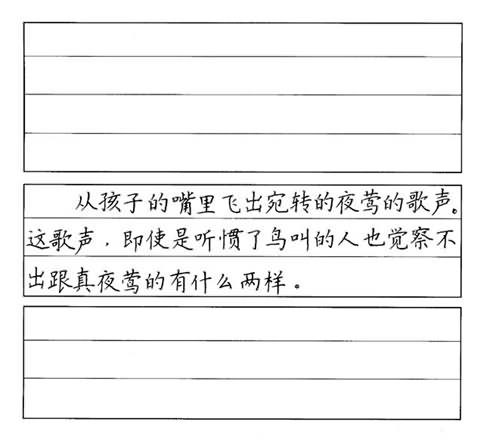 从孩子的嘴里飞出宛转的夜莺的歌声。
这歌声，即使是听惯了鸟叫的人也觉察不
出跟真夜莺的有什么两样。